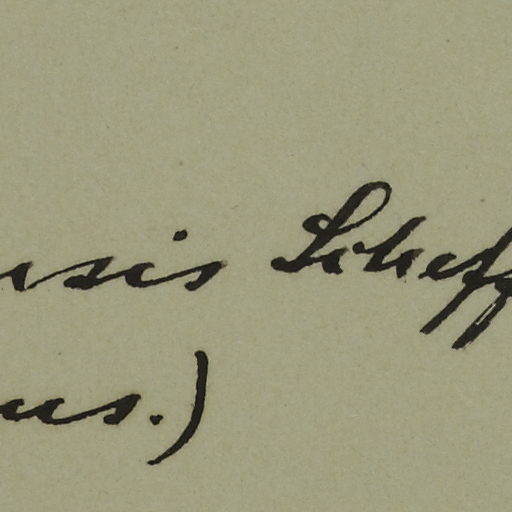 nsis Scheff
us.)